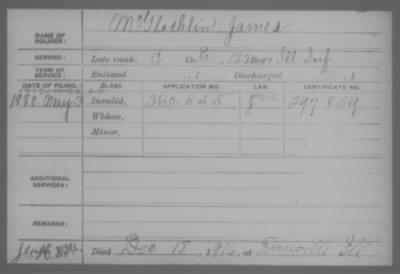 McGlochlin, James
NAME OF SOLDIER:
SERVICE: Late rank, Co. E, 122 Ill. Inf.
TERM OF SERVICE: Enlisted , 1 Discharged , 1
DATE OF FILING. CLASS. APPLICATION NO. LAW. CERTIFICATE NO.
1880 May 3 Invalid, 360.045 297.859.
Widow,
Minor,
ADDITIONAL SERVICES:
REMARKS:
Died Dec 18, 1914, at Danville Ill